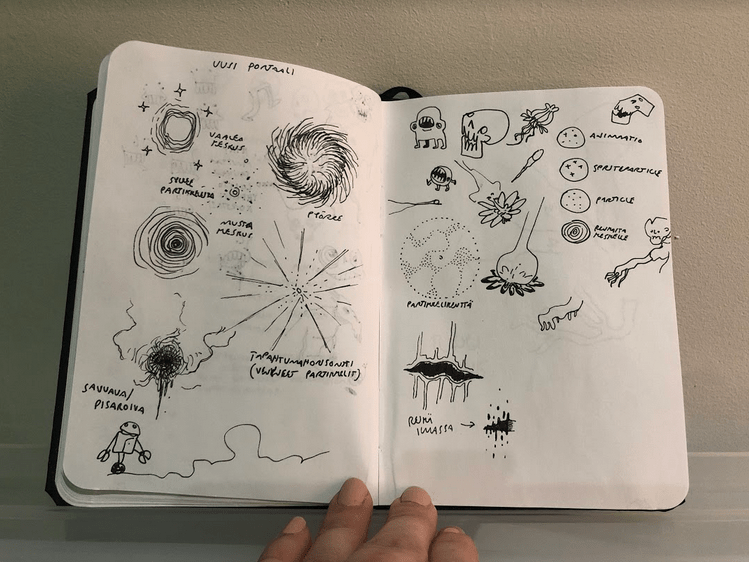 UUSI PORTAALI
VAALEA
KESKUS
SYLKEE
PARTIKKELEITA
PYÖRRE
MUSTA
KESKUS
TAPAHTUMAHORISONTTI
(VENYNEET PARTIKKELIT)
SAVUAVA/
PISAROIVA
ANIMAATIO
SPRITEPARTICLE
PARTICLE
REUNASTA
KESKELLE
PARTIKKELIKENTTÄ
REIKÄ
ILMASSA